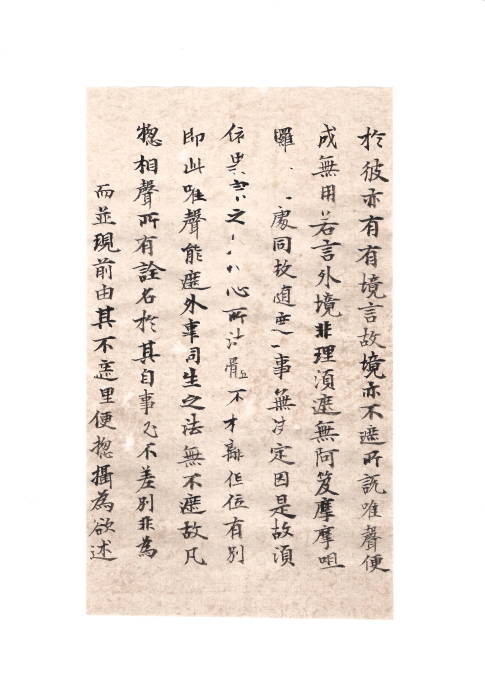 於彼亦有有境言故境亦不遮所說唯聲便
成無用若言外境非理須遮無阿笈摩摩咀
囉處同故遮一事無決定因是故須
依之心所法不離但位有別
即此唯聲能遮外事同生之法無不遮故凡
惣相聲所有詮名於其自事不差別非為
而並現前由其不遮里便惣攝為欲述